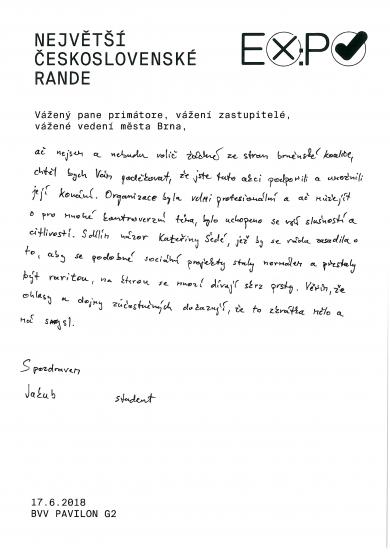 NEJVĚTŠÍ
ČESKOSLOVENSKÉ
RANDE
EXPO
Vážený pane primátore, vážení zastupitelé,
vážené vedení města Brna,
ač nejsem a nebudu volič žádné ze stran brněnské koalice,
chtěl bych Vám poděkovat, že jste tuto akci podpořili a umožnili
její konání. Organizace byla velmi profesionální a ač
o pro mnohé kontroverzní téma, bylo uchopeno se vší slušností a
citlivostí. Sdílím názor Kateřiny Šedé, jež by se ráda zasadila o
to, aby se podobné sociální projekty staly normálem a přestaly
být raritou, na kterou se mnozí dívají skrz prsty. Věřím, že
ohlasy a dojmy zúčastněných dokazují, že to zkrátka mělo a
má smysl.
S pozdravem
Jakub student
17.6.2018
BVV PAVILON G2